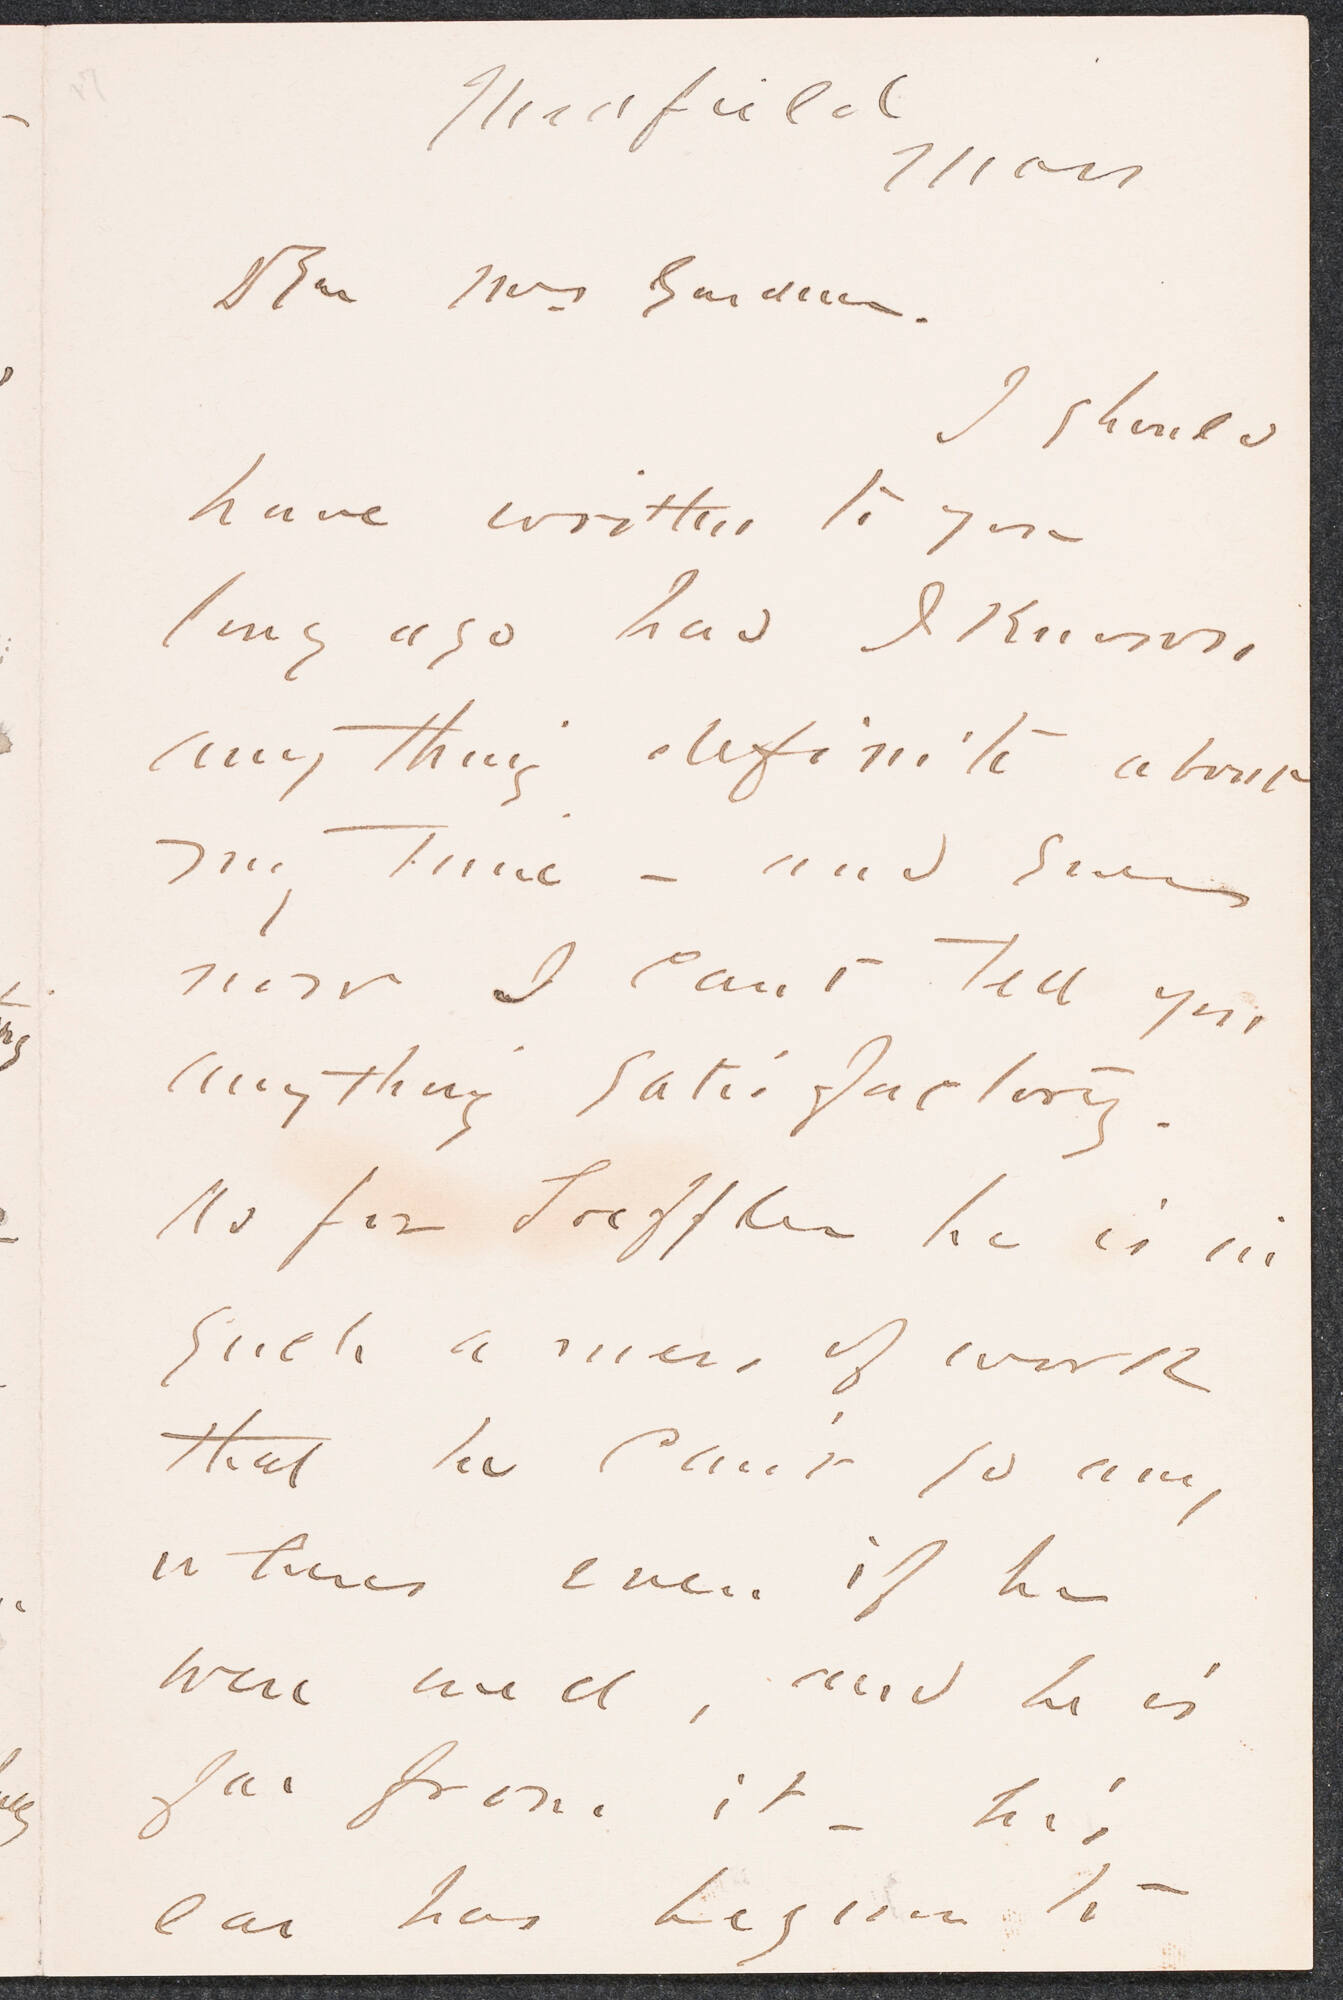 Medfield
Mass
Dear Mrs Gardner.
I should
have written to you
long ago had I known
anything definite about
my time - and even
now I can't tell you
anything satisfactory.
As for Loeffler he is in
such a mess of work
that he can't go any
where even if he
were well, and he is
far from it - his
ear has begun to